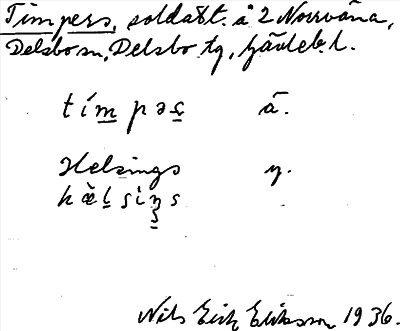 Timpers, soldatt. å 2 Norrväna,
Delsbo sn, Delsbo tg, Gävleb. l.
tímpəs̠ ä.
Helsings y.
hæ̀lsiŋs
Nils Erik Eriksson 1936.